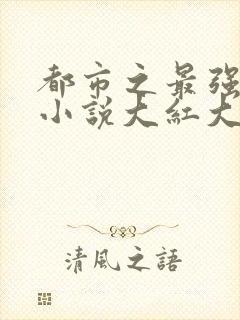 都市之最强
小説大紅大
清風之語